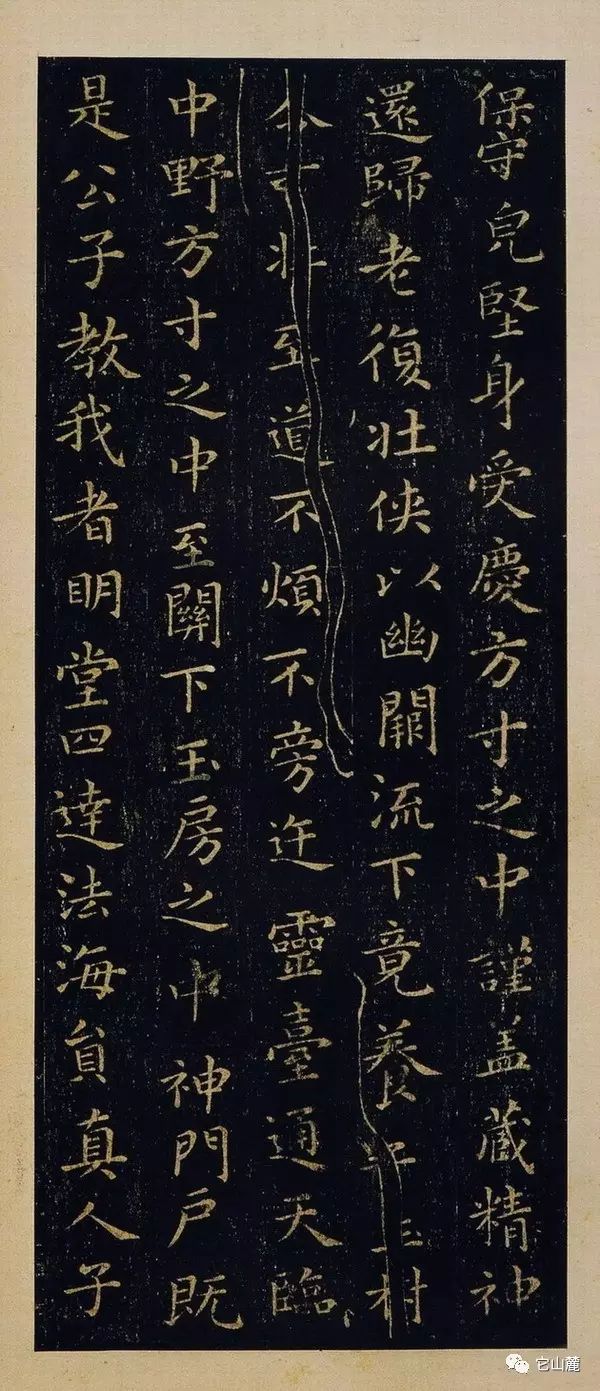 保守皃堅身受慶方寸之中謹盖藏精神
還歸老復壯俠以幽闕流下竟養子玉村
令可壯至道不煩不旁迕靈臺通天臨
中野方寸之中至關下玉房之中神門戶既
是公子教我者明堂四達法海員真人子
它山麓